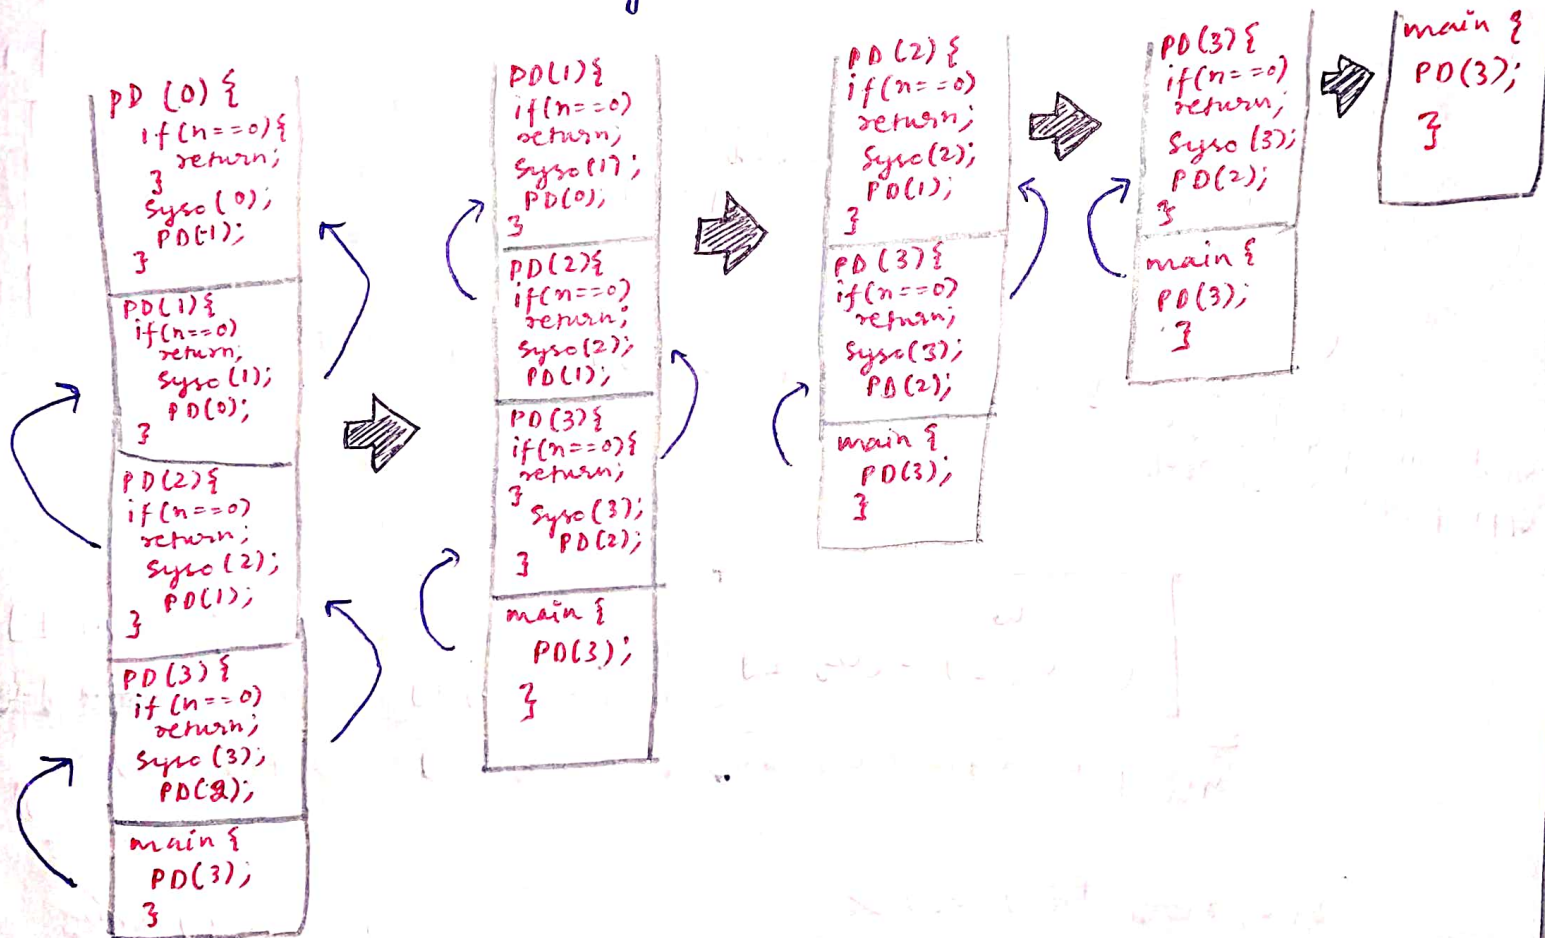 PD (0) {
if(n==0){
return;
}
Syso(0);
PD(-1);
}
PD(1){
if(n==0)
return;
Syso(1);
PD(0);
}
PD(2){
if(n==0)
return;
Syso(2);
PD(1);
}
PD(3){
if(n==0)
return;
Syso(3);
PD(2);
main {
PD(3);
}
PD(1){
if(n==0)
return;
Syso(1);
PD(0);
}
PD(2){
if(n==0)
return;
Syso(2);
PD(1);
PD(3){
if(n==0){
return;
}
Syso(3);
PD(2);
}
main {
PD(3);
}
PD(2){
if(n==0)
return;
Syso(2);
PD(1);
}
PD(3){
if(n==0)
return;
Syso(3);
PD(2);
main {
PD(3);
}
PD(3){
if(n==0)
return;
Syso(3);
PD(2);
}
main {
PD(3);
}
main {
PD(3);
}